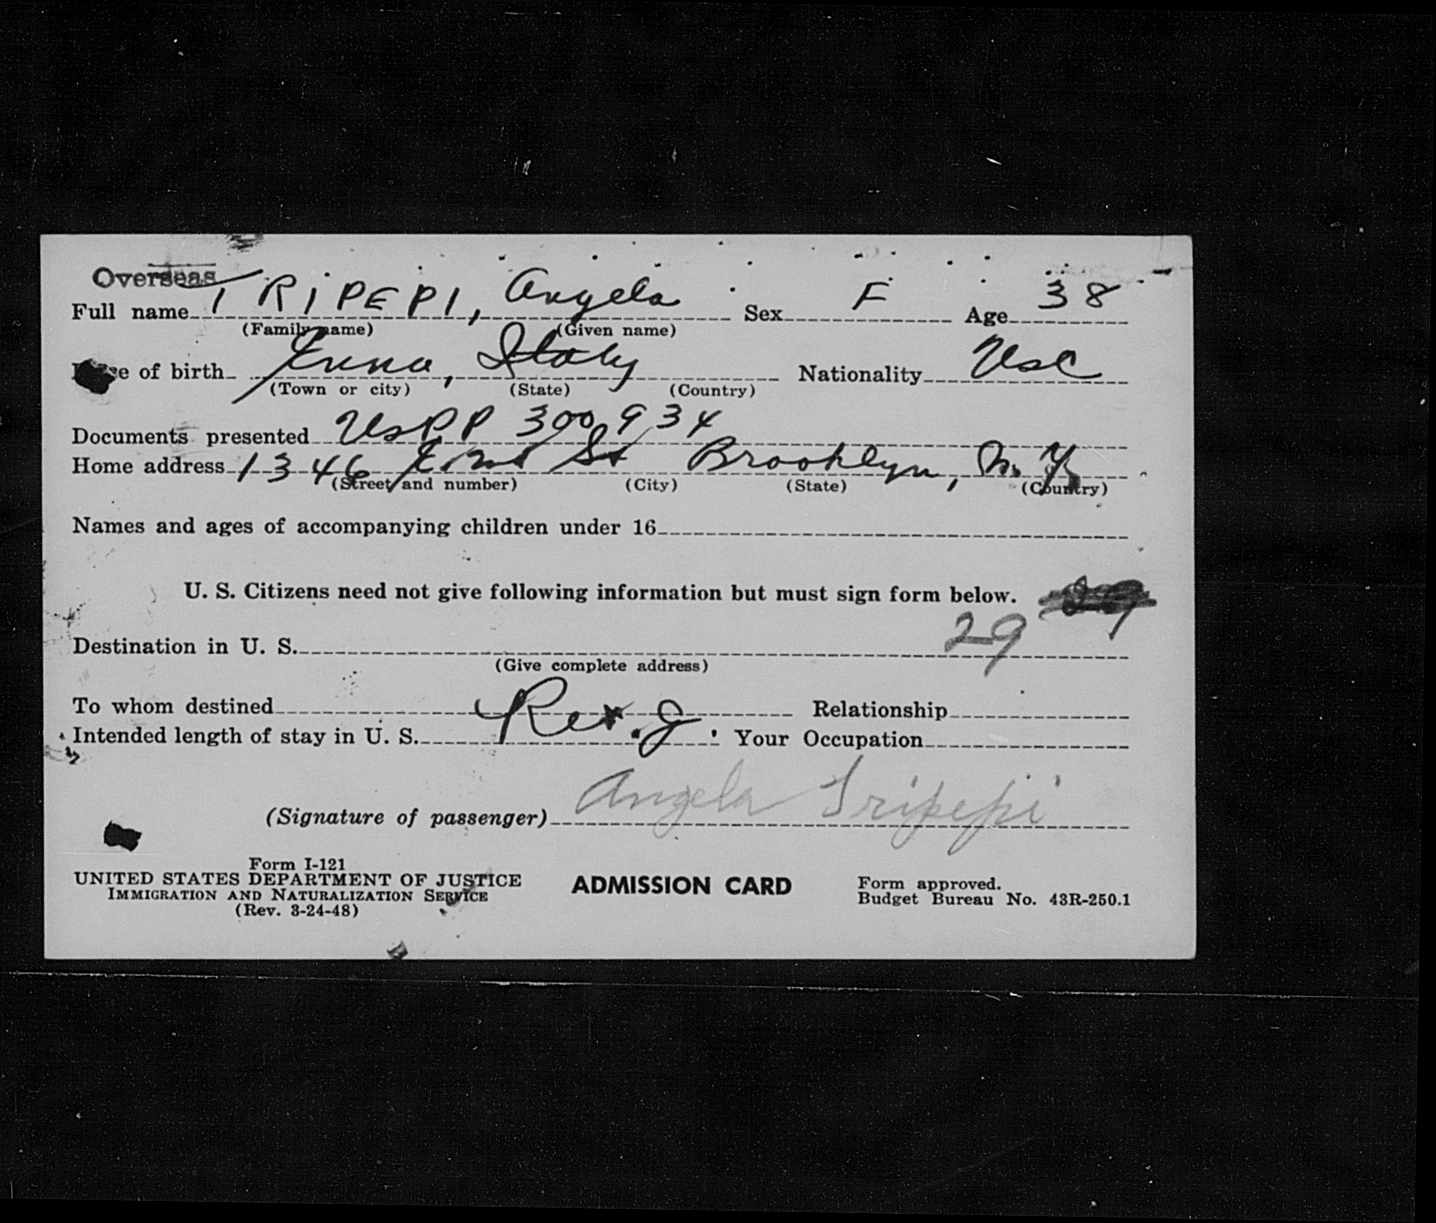 Overseas
Full name TRIPEPI, Angela Sex F Age 38
(Family name) (Given name)
Place of birth Enna, Italy Nationality USC
(Town or city) (State) (Country)
Documents presented USPP 300934
Home address 1346 E. 2nd St Brooklyn, N.Y.
(Street and number) (City) (State) (Country)
Names and ages of accompanying children under 16
U. S. Citizens need not give following information but must sign form below.
29
Destination in U. S.
(Give complete address)
To whom destined Relationship
Intended length of stay in U. S. Your Occupation
(Signature of passenger) Angela Tripepi
Form I-121
UNITED STATES DEPARTMENT OF JUSTICE
IMMIGRATION AND NATURALIZATION SERVICE
(Rev. 3-24-48)
ADMISSION CARD
Form approved.
Budget Bureau No. 43R-250.1